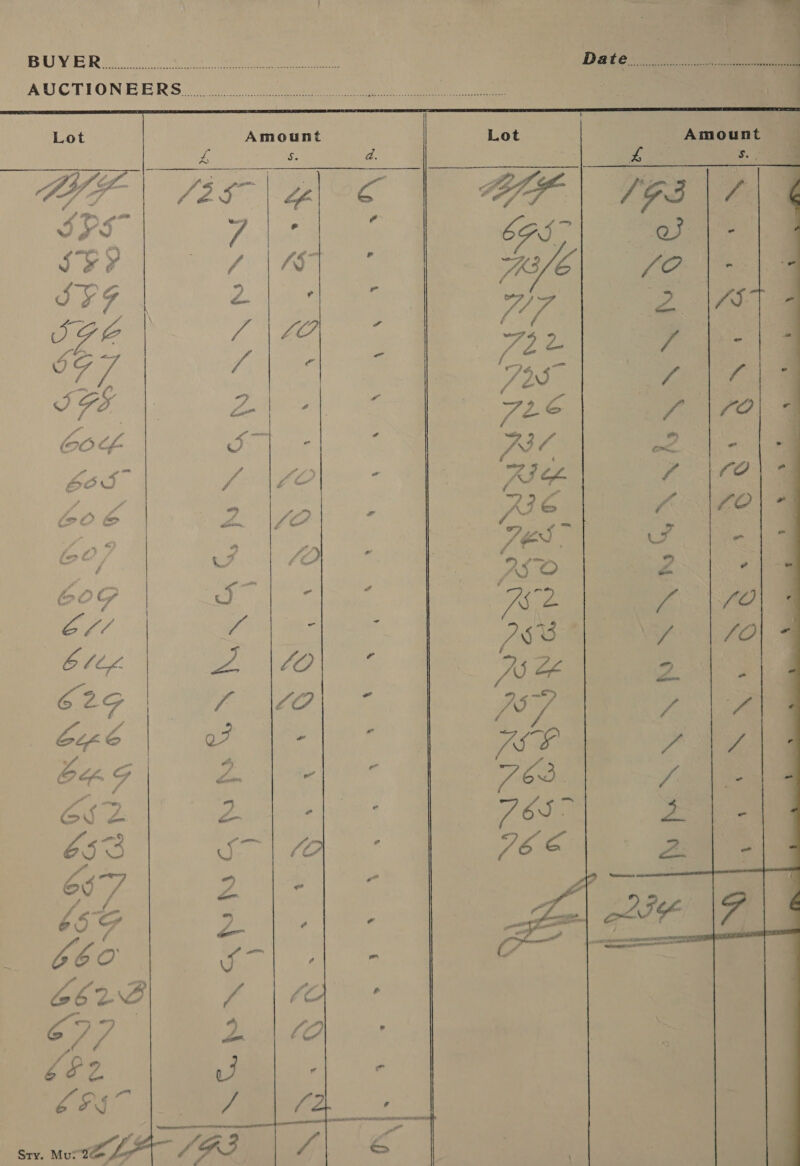 BUYER Date
AUCTIONEERS
Lot Amount Lot Amount
£ s. d. £ s.
B/F 125 4 6 B/F 193 1 6
585 7 - - 695 3 - -
588 1 15 - 713/6 10 - -
589 2 - - 717 2 15 -
596 1 10 - 722 1 - -
597 1 - - 725 1 1 -
598 2 - - 726 1 10 -
604 5 - - 731 2 - -
605 1 10 - 734 1 10 -
606 2 10 - 736 1 10 -
607 3 10 - 745 3 - -
609 5 - - 750 2 - -
611 1 - - 752 1 10 -
614 2 10 - 753 1 10 -
629 1 10 - 754 2 - -
646 3 - - 757 1 1 -
649 2 - - 758 1 1 -
652 2 - - 763 1 - -
653 5 10 - 765 2 - -
657 2 - - 766 2 - -
659 2 - - £ 234 9 6
660 5 - -
662B 1 10 -
677 2 10 -
682 3 - -
685 1 12 -
Sty. Mu. C/F 193 1 6